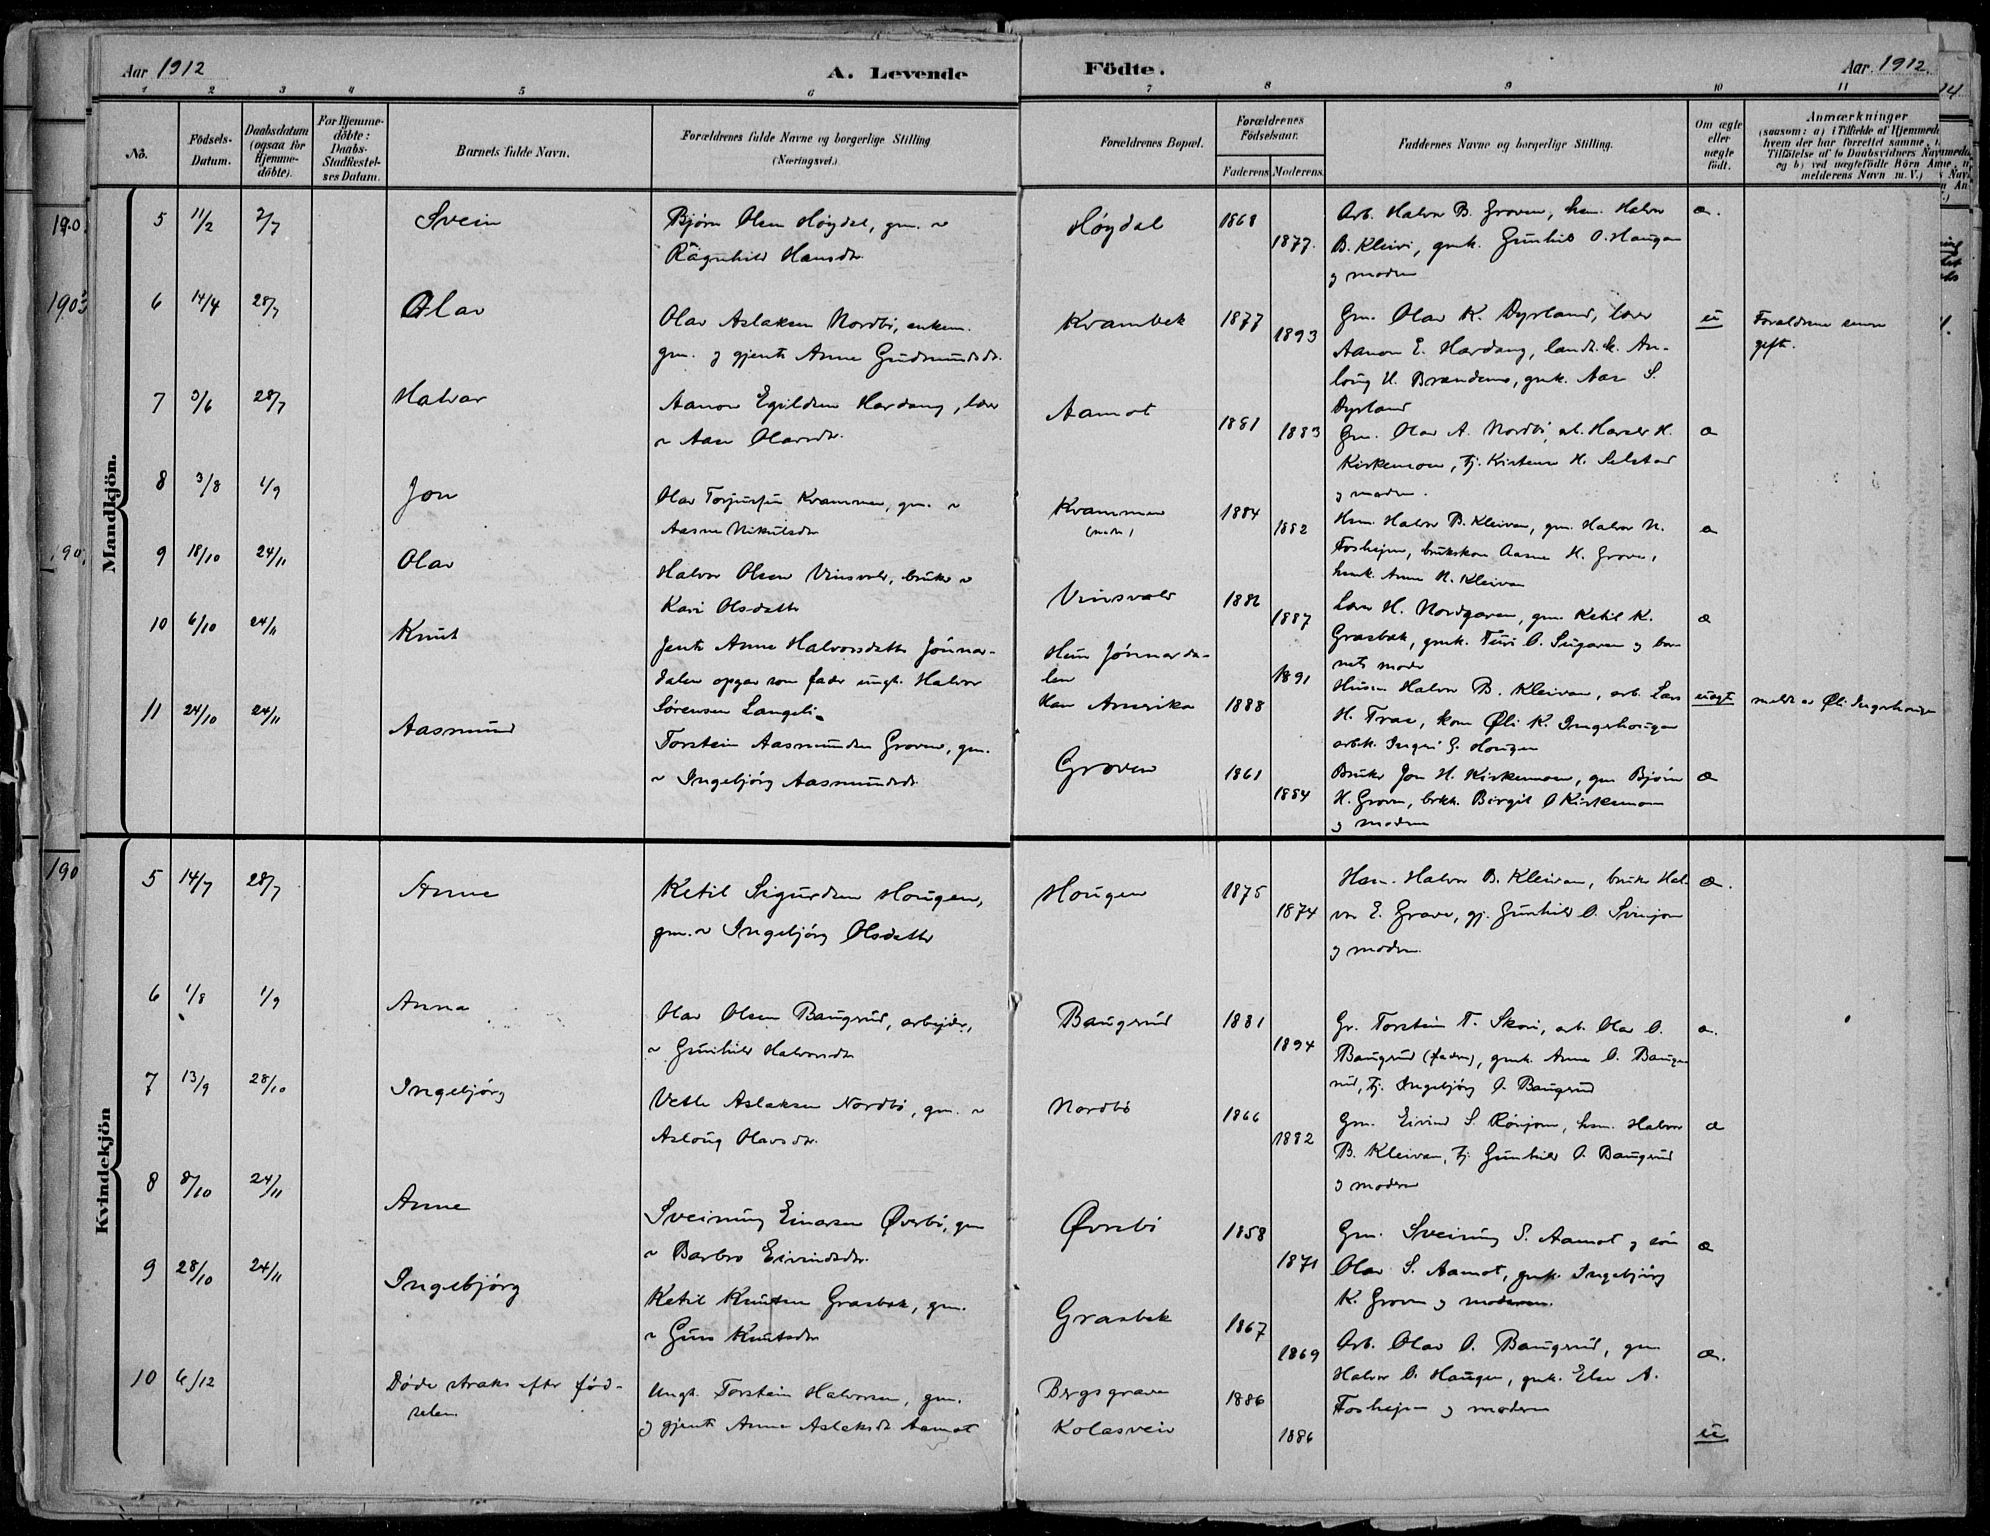 Aar 1912
A. Levende
Födte.
Aar 1912.
1 2 3 4 5 6 7 8 9 10 11
No.
Födsels-Datum.
Daabsdatum (ogsaa for Hjemme-döbte).
For Hjemme-döbte: Daabs-Stadfæstel-ses Datum.
Barnets fulde Navn.
Forældrenes fulde Navne og borgerlige Stilling
(Næringsvei.)
Forældrenes Bopæl.
Forældrenes Födselsaar.
Faderens Moderens
Faddernes Navne og borgerlige Stilling.
Om ægte eller uægte födt.
Anmærkninger
(saasom: a) i Tilfælde af Hjemmedaab
hvem der har forrettet samme,
Tilføielse af to Daabsvidners Navne
og b) ved uægtefødte Börn Anmelderens Navn m. V.)
Mandkjön.
5 11/2 7/7 Svein
Bjørn Olsen Høgdal, gm. ~
Ragnhild Hansdtr.
Høgdal 1868 1877.
Arb. Halvor B. Groven, hsm. Halvor
B. Kleivi, gmk. Gunhild O. Haugen
og moderen
æ.
6 14/4 28/7 Olav
Olav Aslaksen Nordbö, enkem.
gm. og gjente Anne Gudmundsdtr.
Kvambek 1877 1893
Gm. Olav K. Dyrland, lærer
Aanon E. Hardang, landh. k. An-
laug H. Brændemo, gmk. Aase S.
Dyrland
u
Forældrene senere
gift.
7 3/6 28/7 Halvor
Aanon Egildsen Hardang, lærer
~ Aase Olavsdtr.
Aamot 1881 1883
Gm. Olav A. Nordbö, arb. Harald H.
Kirkemoen, tj. Kristense H. Selstad
og moderen.
æ
8 3/8 1/9 Jon
Olav Torjussen Kvammen, gm. ~
Aasne Nikulsdtr
Kvammen
(nedre)
1884 1882
Hsm. Halvor B. Kleivan, gm. Halvor N.
Foshejen, brukskone Aasne H. Groven,
hsmk. Anne H. Kleivan
æ
9 18/10 24/11 Olav
Halvor Olsen Vinsvald, bruker ~
Kari Olsdatter
Vinsvald 1882 1887
Lærer H. Nordgaren, gm. Ketil K.
Grasbek, gmk. Turi O. Sugaren og bar-
nets moder
æ
10 6/10 24/11 Knut
Jente Anne Halvorsdatter Jönnar-
dalen opgav som fader ungk. Halvor
Sørensen Langeli.
Hun Jönnarda-
len
Han Amerika
1888 1891
Husm. Halvor B. Kleivan, arb. Lars
H. Traa, kone Øli K. Ingerhougen
arbk. Ingri G. Hougen
uægt
meldt av Øli Ingerhougen
11 24/10 24/11 Aasmund
Torstein Aasmundsen Groven, gm.
~ Ingebjörg Aasmundsdtr
Groven 1861 1884
Bruker Jon H. Kirkemoen, gm Bjørn
H. Groven, brkk. Birgit O Kirkemoen
og moderen
æ
Kvindekjön
5 14/7 28/7 Anne
Ketil Sigurdsen Hougen,
gm. ~ Ingebjörg Olsdatter
Hougen 1875 1874
Hsm. Halvor B. Kleivan, bruker Hal-
vor E. Grave, gj. Gunhild O. Svinjom
og moderen.
æ.
6 1/8 1/9 Anna
Olav Olsen Baugerud, arbejder,
~ Gunhild Halvorsdtr
Baugrud 1881 1894
Gr. Torstein T. Skori, arb. Olav O.
Baugrud (faderen), gmk. Anne O. Bauge-
rud, tj. Ingebjörg O. Baugrud
æ.
7 13/9 28/10 Ingebjörg
Vetle Aslaksen Nordbö, gm. ~
Aslaug Olavsdtr.
Nordbö 1866 1882
Gm. Eivind S. Rønjom, hsm. Halvor
B. Kleivan, tj. Gunhild O. Baugrud
og moderen
æ
8 8/10 24/11 Anne
Sveinung Einarsen Øverbö, gm
~ Barbro Eivindsdtr.
Øverbö 1858 1871
Gm. Sveinung S. Aamot og sön
Olav S. Aamot, gmk. Ingebjörg
K. Groven og moderen.
æ
9 28/10 24/11 Ingebjörg
Ketil Knutsen Grasbek, gm.
~ Guro Knutsdtr
Grasbek 1867 1869
Arb. Olav O. Baugrud, gm.
Halvor O. Haugen, gmk. Else A.
Foshejen og moderen
æ.
10 6/12
Døde straks efter fød-
selen
Ungk. Torstein Halvorsen, gm.
og gjente Anne Aslaksdtr Aamot
Bergsgrave
Kolasvein
1886 1886
u